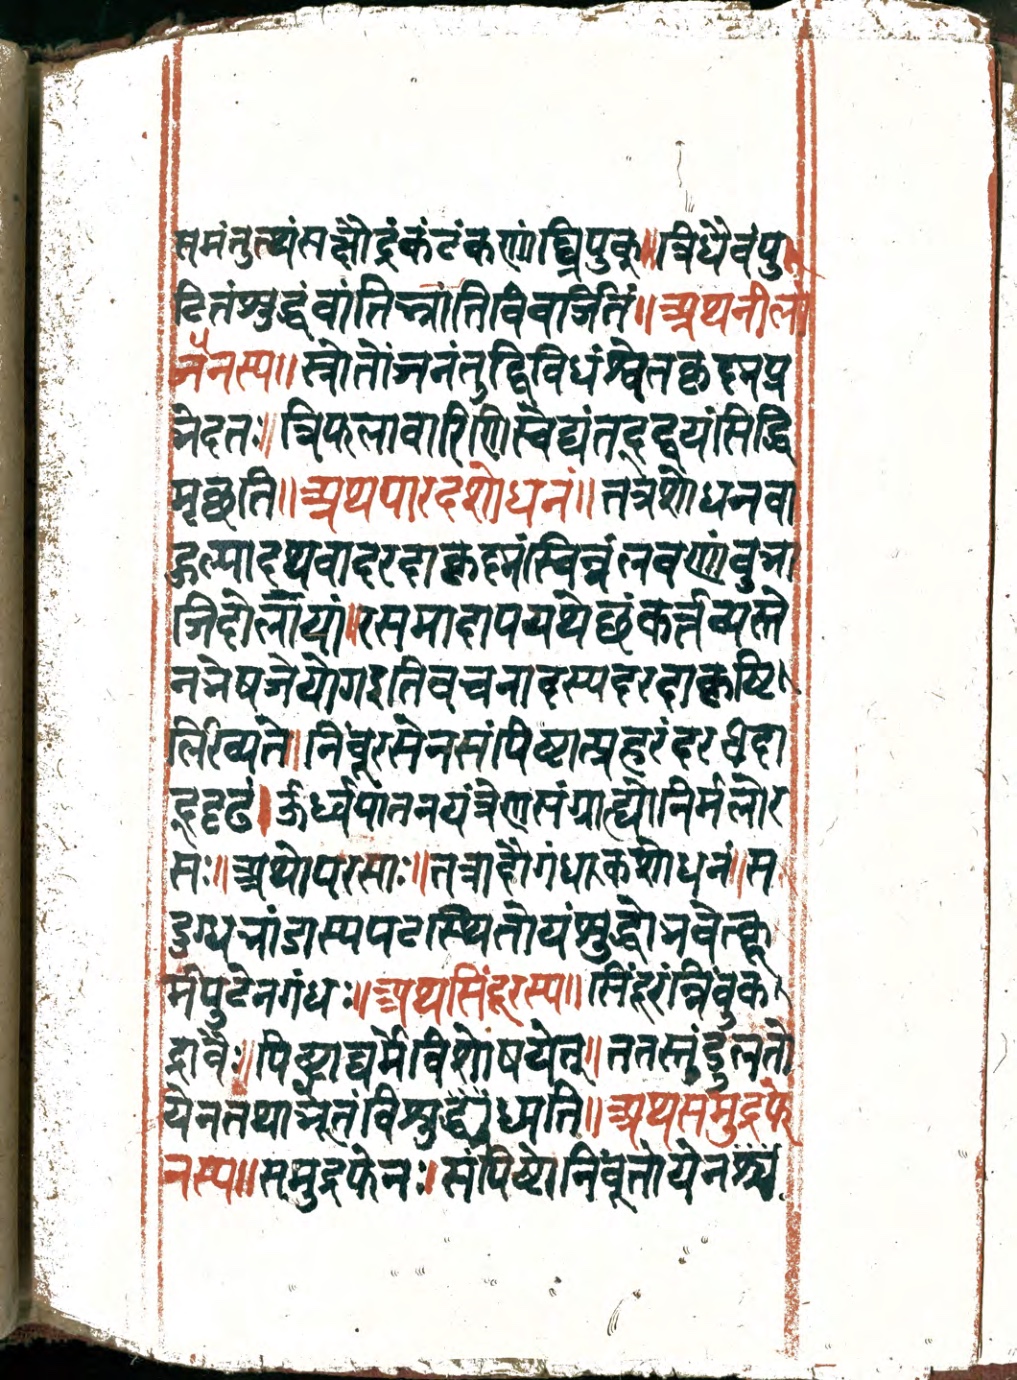 समंतुत्थंसक्षौद्रंकंटंकणांघ्रिपुक्॥त्रिधैवंपु
टितंशुद्धंवांतिभ्रांतिविवर्जितं॥अथनीलां
जनस्य॥स्त्रोतोंजनंतुद्विविधंश्वेतकृष्णप्र
भेदतः॥त्रिफलावारिणिस्वेद्यंतद्द्वयंसिद्धि
मृछति॥अथपारदशोधनं॥तत्रशोधनवा
हुल्यादथवादरदाकृष्णंस्विन्नंलवणांवुभा
जिदोलायां॥रसमादापयथेछंकर्त्तव्यस्ते
नभेषजैयोगइतिवचनादस्यदरदाकृष्टि
लिख्यते॥निंवूरसेनसंपिष्टात्प्रहरंदरदा
द्दृढं।ऊर्ध्वपातनयंत्रेणसंग्राह्योनिर्मलोर
सः॥अथोपरसाः॥तत्रादौगंधाकशोधनं॥स
दुग्धभांडास्यपटस्थितोयंशुद्धोभवेत्कू
र्मपुटेनगंधः॥अथसिंदूरस्य॥सिंदूरंन्निंवुक
द्रावैः॥पिष्ट्वाघर्मेविशोषयेत्॥ततस्तंडुलतो
येनतथाभूतंविशुद्ध्यति॥अथसमुद्रफे
नस्य॥समुद्रफेनः॥संपिष्टोनिंवूतोयेन